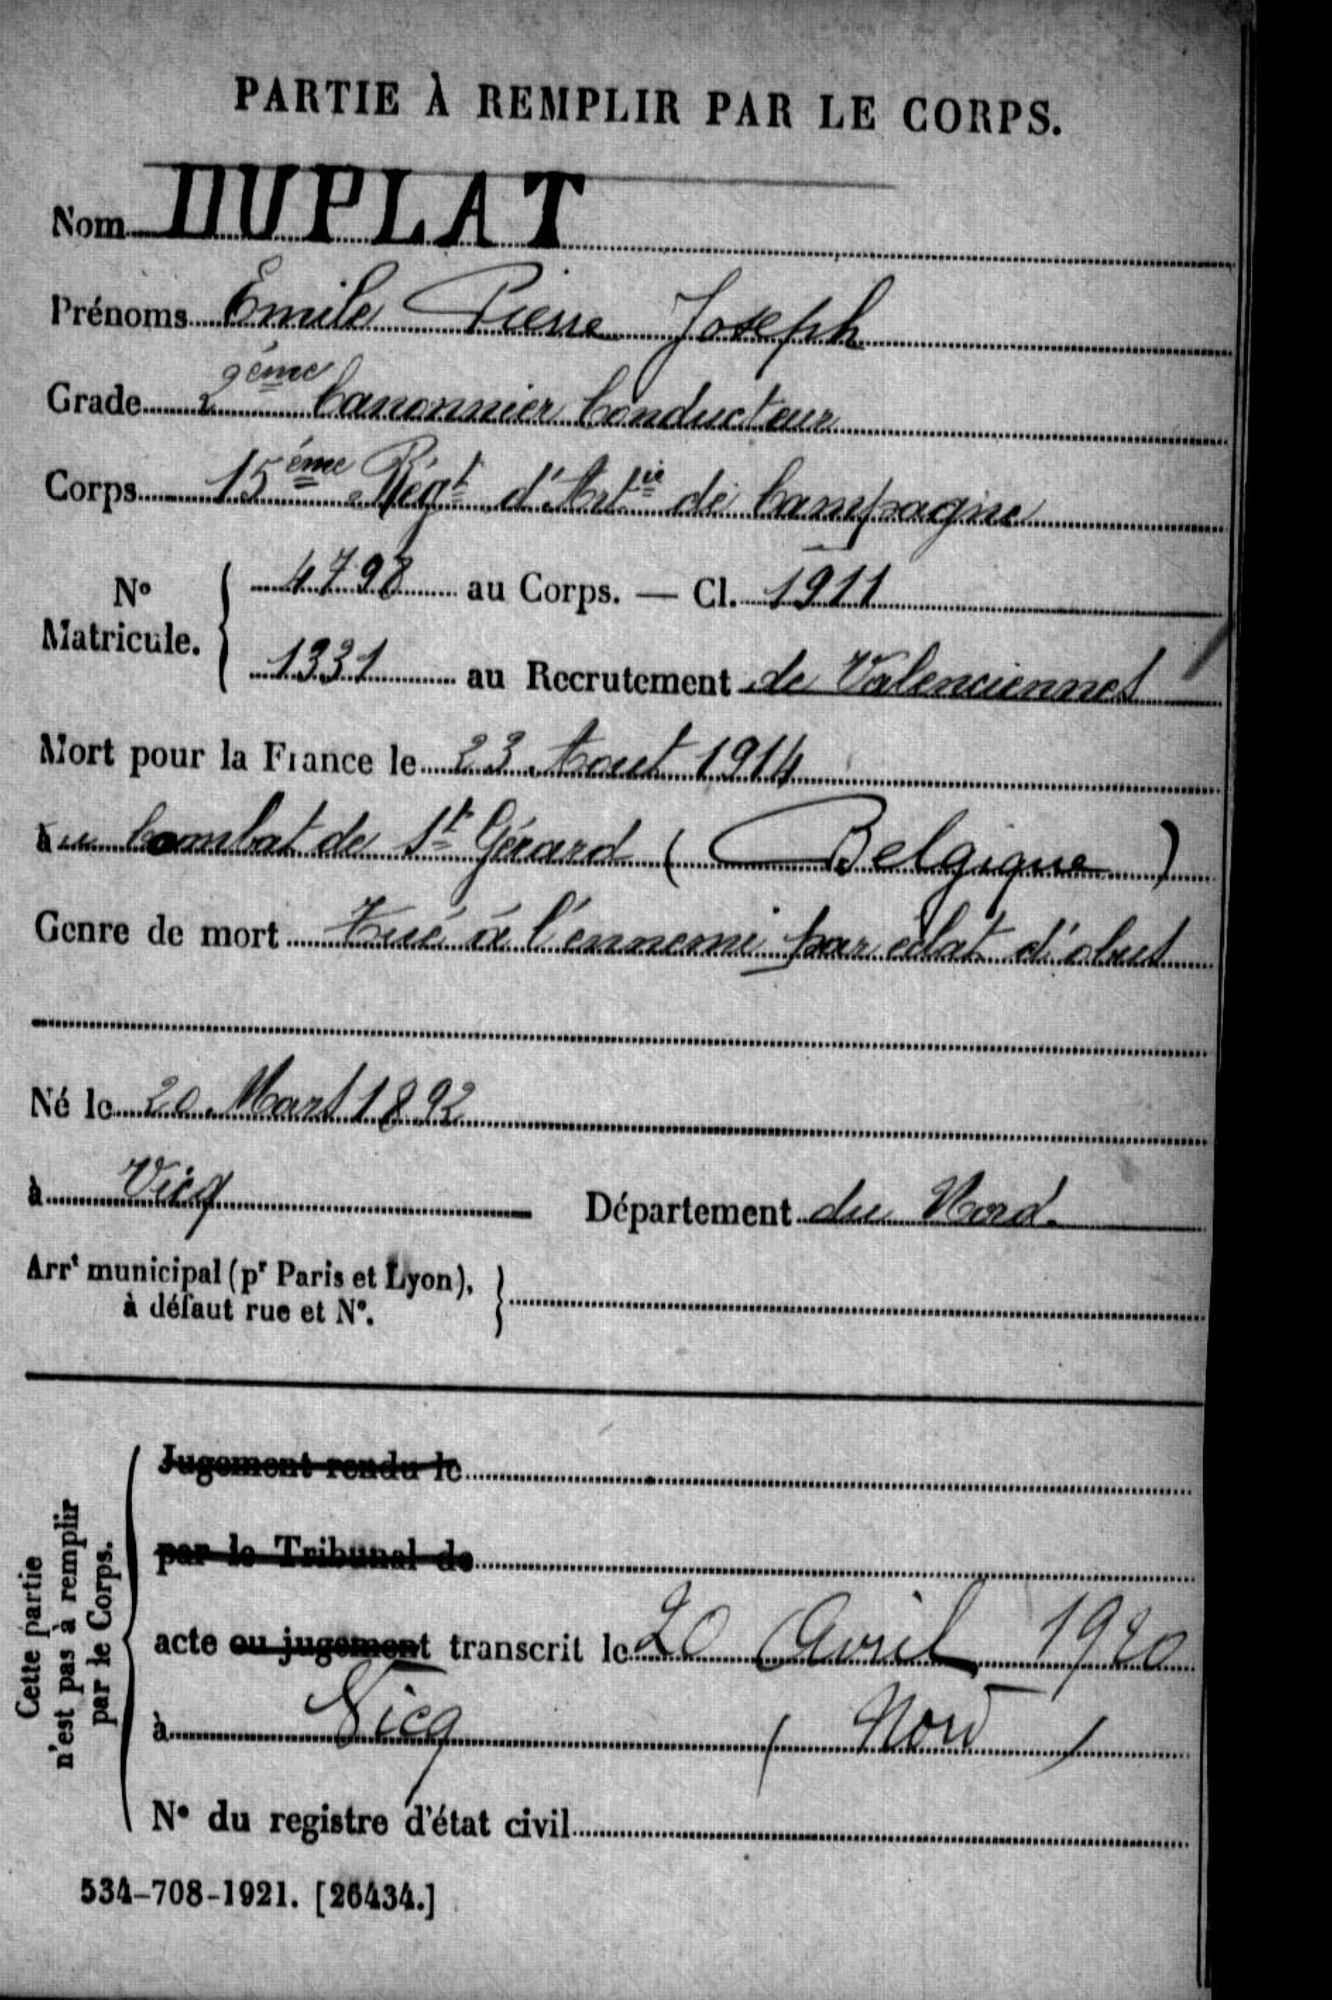 PARTIE À REMPLIR PAR LE CORPS.
Nom DUPLAT
Prénoms Emile Pierre Joseph
Grade 2ème Canonnier Conducteur
Corps 15ème Régt d'Artie de Campagne
No Matricule. { 4798 au Corps. — Cl. 1911
1331 au Recrutement de Valenciennes
Mort pour la France le 23 Aout 1914
au Combat de St Gérard ( Belgique )
Genre de mort Tué à l'ennemi par éclat d'obus
Né le 20 Mars 1892
à Vicq Département du Nord.
Arrt municipal (pr Paris et Lyon), à défaut rue et No. }
Cette partie n'est pas à remplir par le Corps.
Jugement rendu le
par le Tribunal de
acte ou jugement transcrit le 20 Avril 1920
à Vicq ( Nord )
No du registre d'état civil
534-708-1921. [26434.]